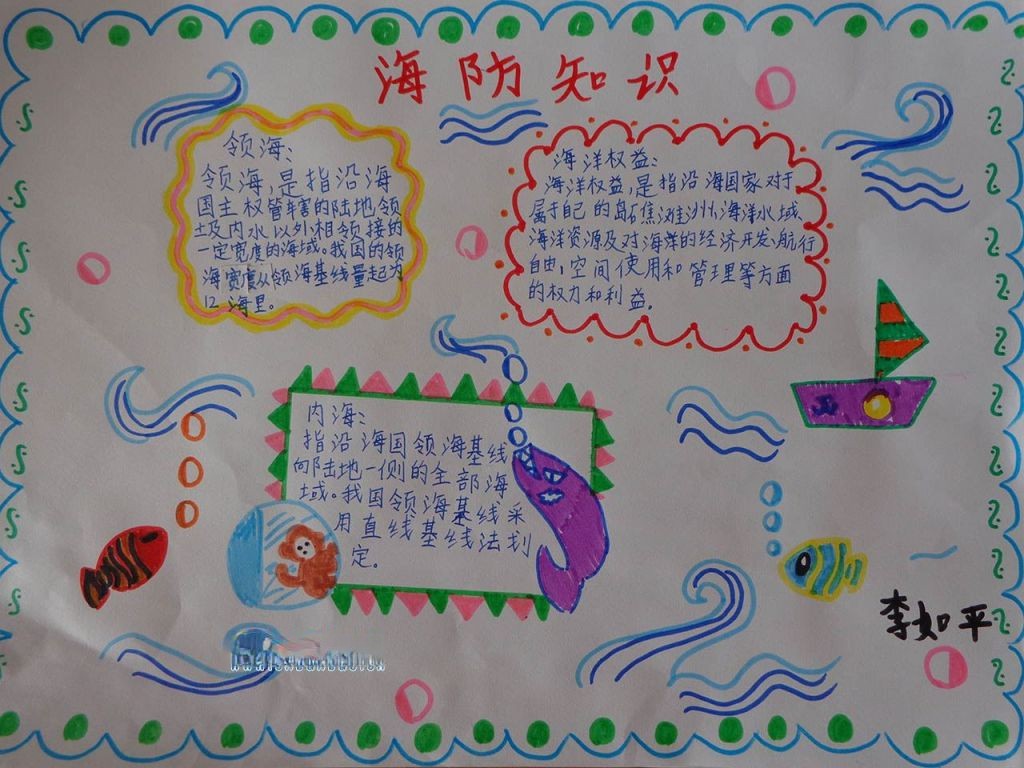 海防知识
领海：
领海，是指沿海
国主权管辖的陆地领
土及内水以外相领接的
一定宽度的海域。我国的领
海宽度从领海基线量起为
12海里。
海洋权益：
海洋权益，是指沿海国家对于
属于自己的岛礁滩洲、海洋水域、
海洋资源及对海洋的经济开发、航行
自由，空间使用和管理等方面
的权力和利益。
内海：
指沿海国领海基线
向陆地一侧的全部海
域。我国领海基线采
用直线基线法划
定。
李如平